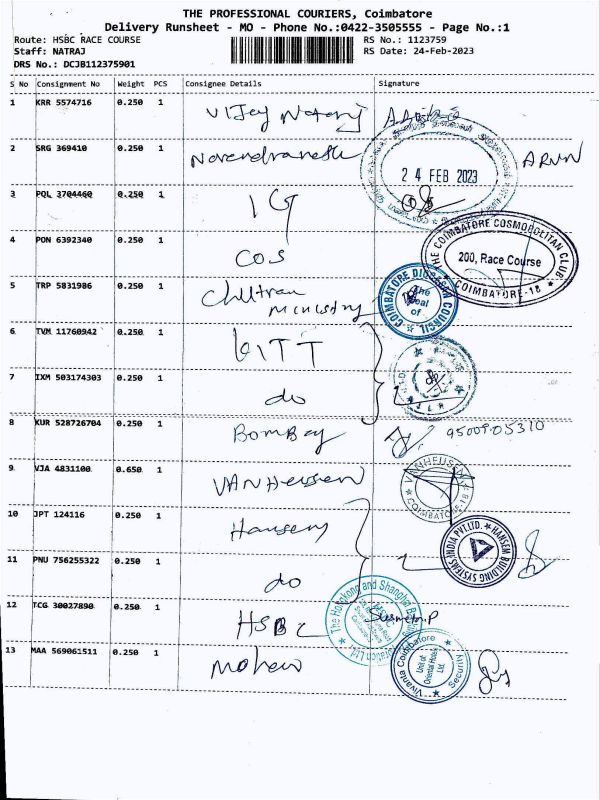 THE PROFESSIONAL COURIERS, Coimbatore
Delivery Runsheet - MO - Phone No.:0422-3505555 - Page No.:1
Route: HSBC RACE COURSE
RS No.: 1123759
Staff: NATRAJ
RS Date: 24-Feb-2023
DRS No.: DCJB112375901
S No Consignment No Weight PCS Consignee Details Signature
1 KRR 5574716 0.250 1 Vijay
2 SRG 369410 0.250 1 ARUN
24 FEB 2023
3 PQL 3704460 0.250 1 IG
4 PON 6392340 0.250 1 COS
THE COIMBATORE COSMOPOLITAN CLUB
200, Race Course
COIMBATORE-18
5 TRP 5831986 0.250 1 ministry
COIMBATORE DIOCESAN COUNCIL
The Seal of
6 TVM 11760942 0.250 1
7 IXM 503174303 0.250 1 do
8 KUR 528726704 0.250 1 Bombay
9 VJA 4831100 0.650 1 VANHeusen
VANHEUSEN
COIMBATORE-18
10 JPT 124116 0.250 1
HANSEM BUILDING SYSTEMS INDIA PVT.LTD.
11 PNU 756255322 0.250 1 do
12 TCG 30027890 0.250 1 HSBC
The Hongkong and Shanghai Banking Corporation Ltd
HSBC
13 MAA 569061511 0.250 1
Vivanta Coimbatore
Unit of Oriental Hotels Ltd.
Security